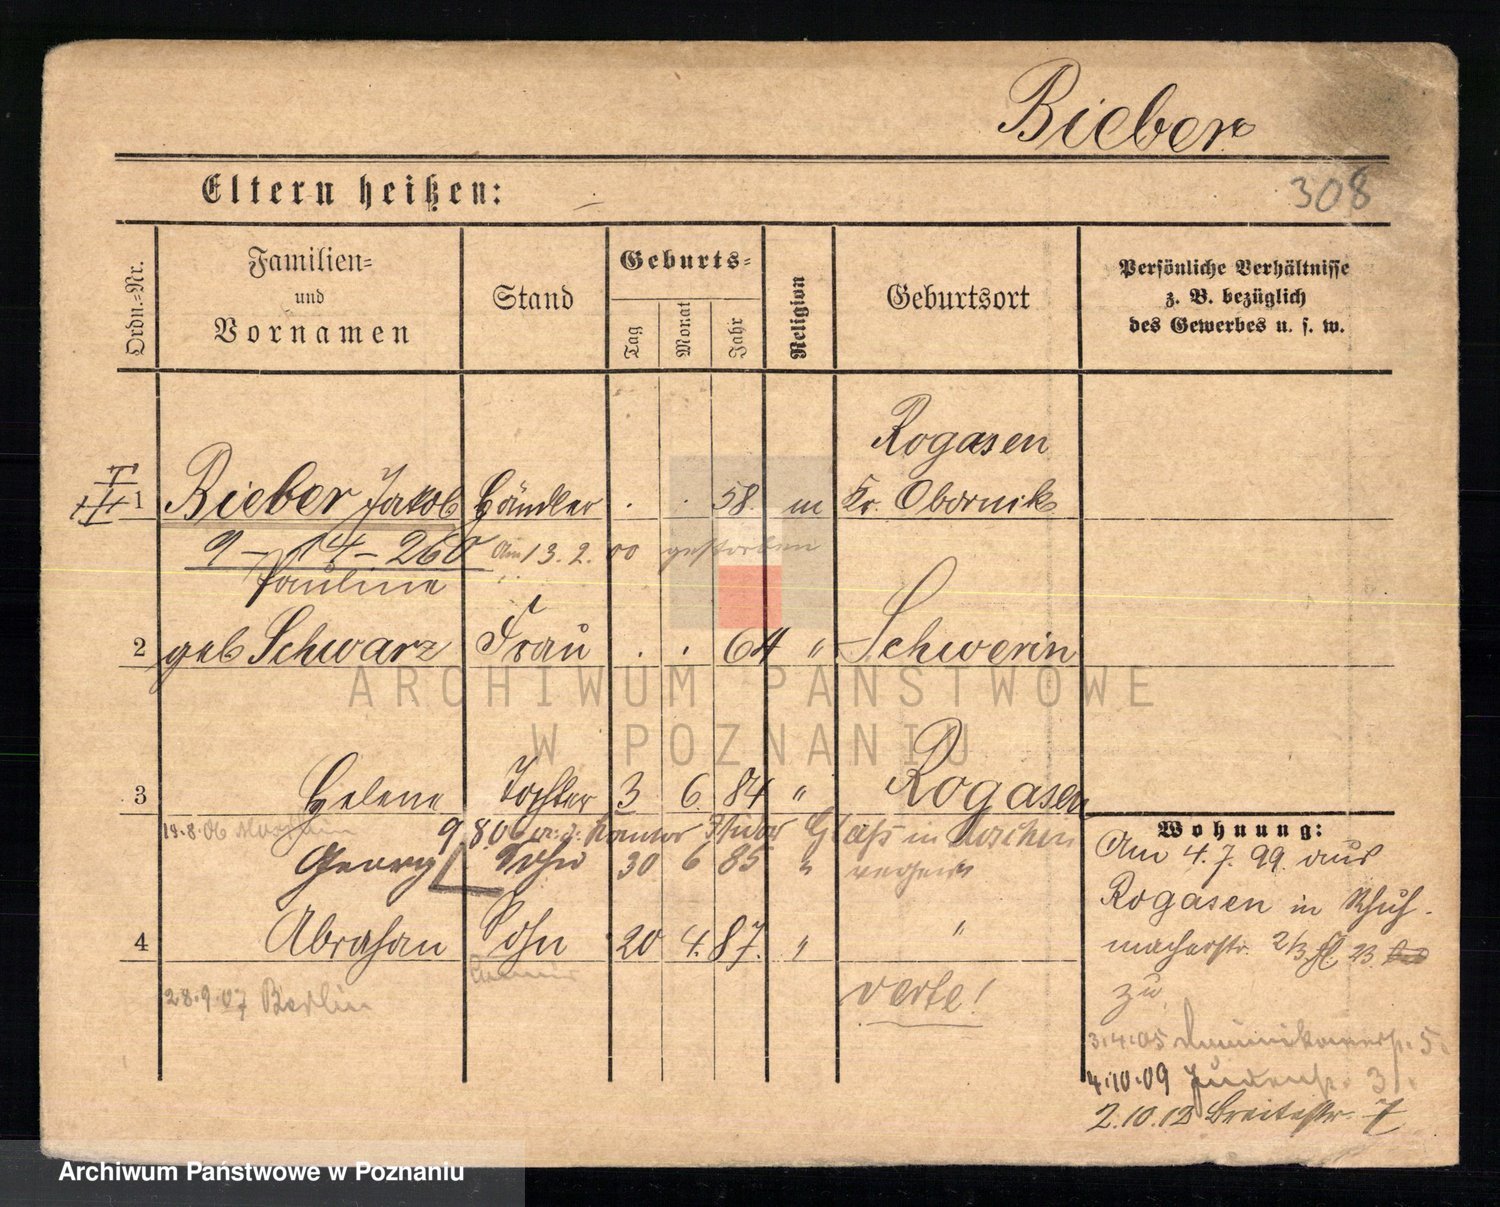 Bieber
Eltern heißen: –
308
Ordn.-Nr.
Familien-
und
Vornamen
Stand
Geburts-
Tag
Monat
Jahr
Religion
Geburtsort
Persönliche Verhältnisse
z. B. bezüglich
des Gewerbes u. s. w.
Rogasen
1 Bieber Jakob Händler . . 58. m Kr. Obornik
9 – 14 – 260 Am 13. 2. 00 gestorben
Pauline
2 geb Schwarz Frau . . 64 " Schwerin
3 Helene Tochter 3 6. 84 " Rogasen
19.8.06 980 Kantor Isidor Glass in
Georg Sohn 30 6 85 "
4 Abraham Sohn 20 4. 87. " "
28.9.07 Berlin
verte!
Wohnung:
Am 4. 7. 99 aus
Rogasen in Schuh-
macherstr. 2/3
zu
3.4.05 Dominikanerstr. 5.
4.10.09 Judenstr. 31.
2.10.12 Breitestr. 7
ARCHIWUM PAŃSTWOWE
W POZNANIU
Archiwum Państwowe w Poznaniu